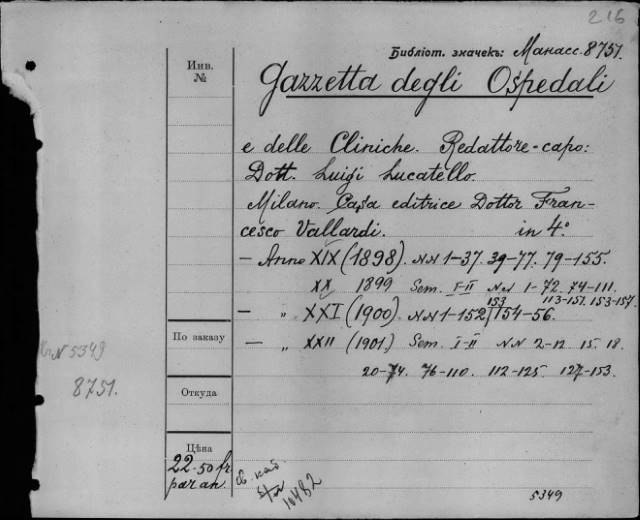 216
Библіот. значекъ: Манасс. 8751.
Инв.
№
Gazzetta degli Ospedali
e delle Cliniche. Redattore-capo:
Dott. Luigi Lucatello.
Milano. Casa editrice Dottor Fran-
cesco Vallardi. in 4º
- Anno XIX (1898). NN 1-37. 39-77. 79-155.
XX 1899 Sem. I-II NN 1-72. 74-111.
113-151. 153-157.
- „ XXI (1900). NN 1-152, 153 154-56.
По заказу
- „ XXII (1901) Sem. I-II NN 2-12 15. 18.
20-74. 76-110. 112-125. 127-153.
N 5349
8751.
Откуда
Цѣна
22.50 fr.
par an.
каб.
10482
5349